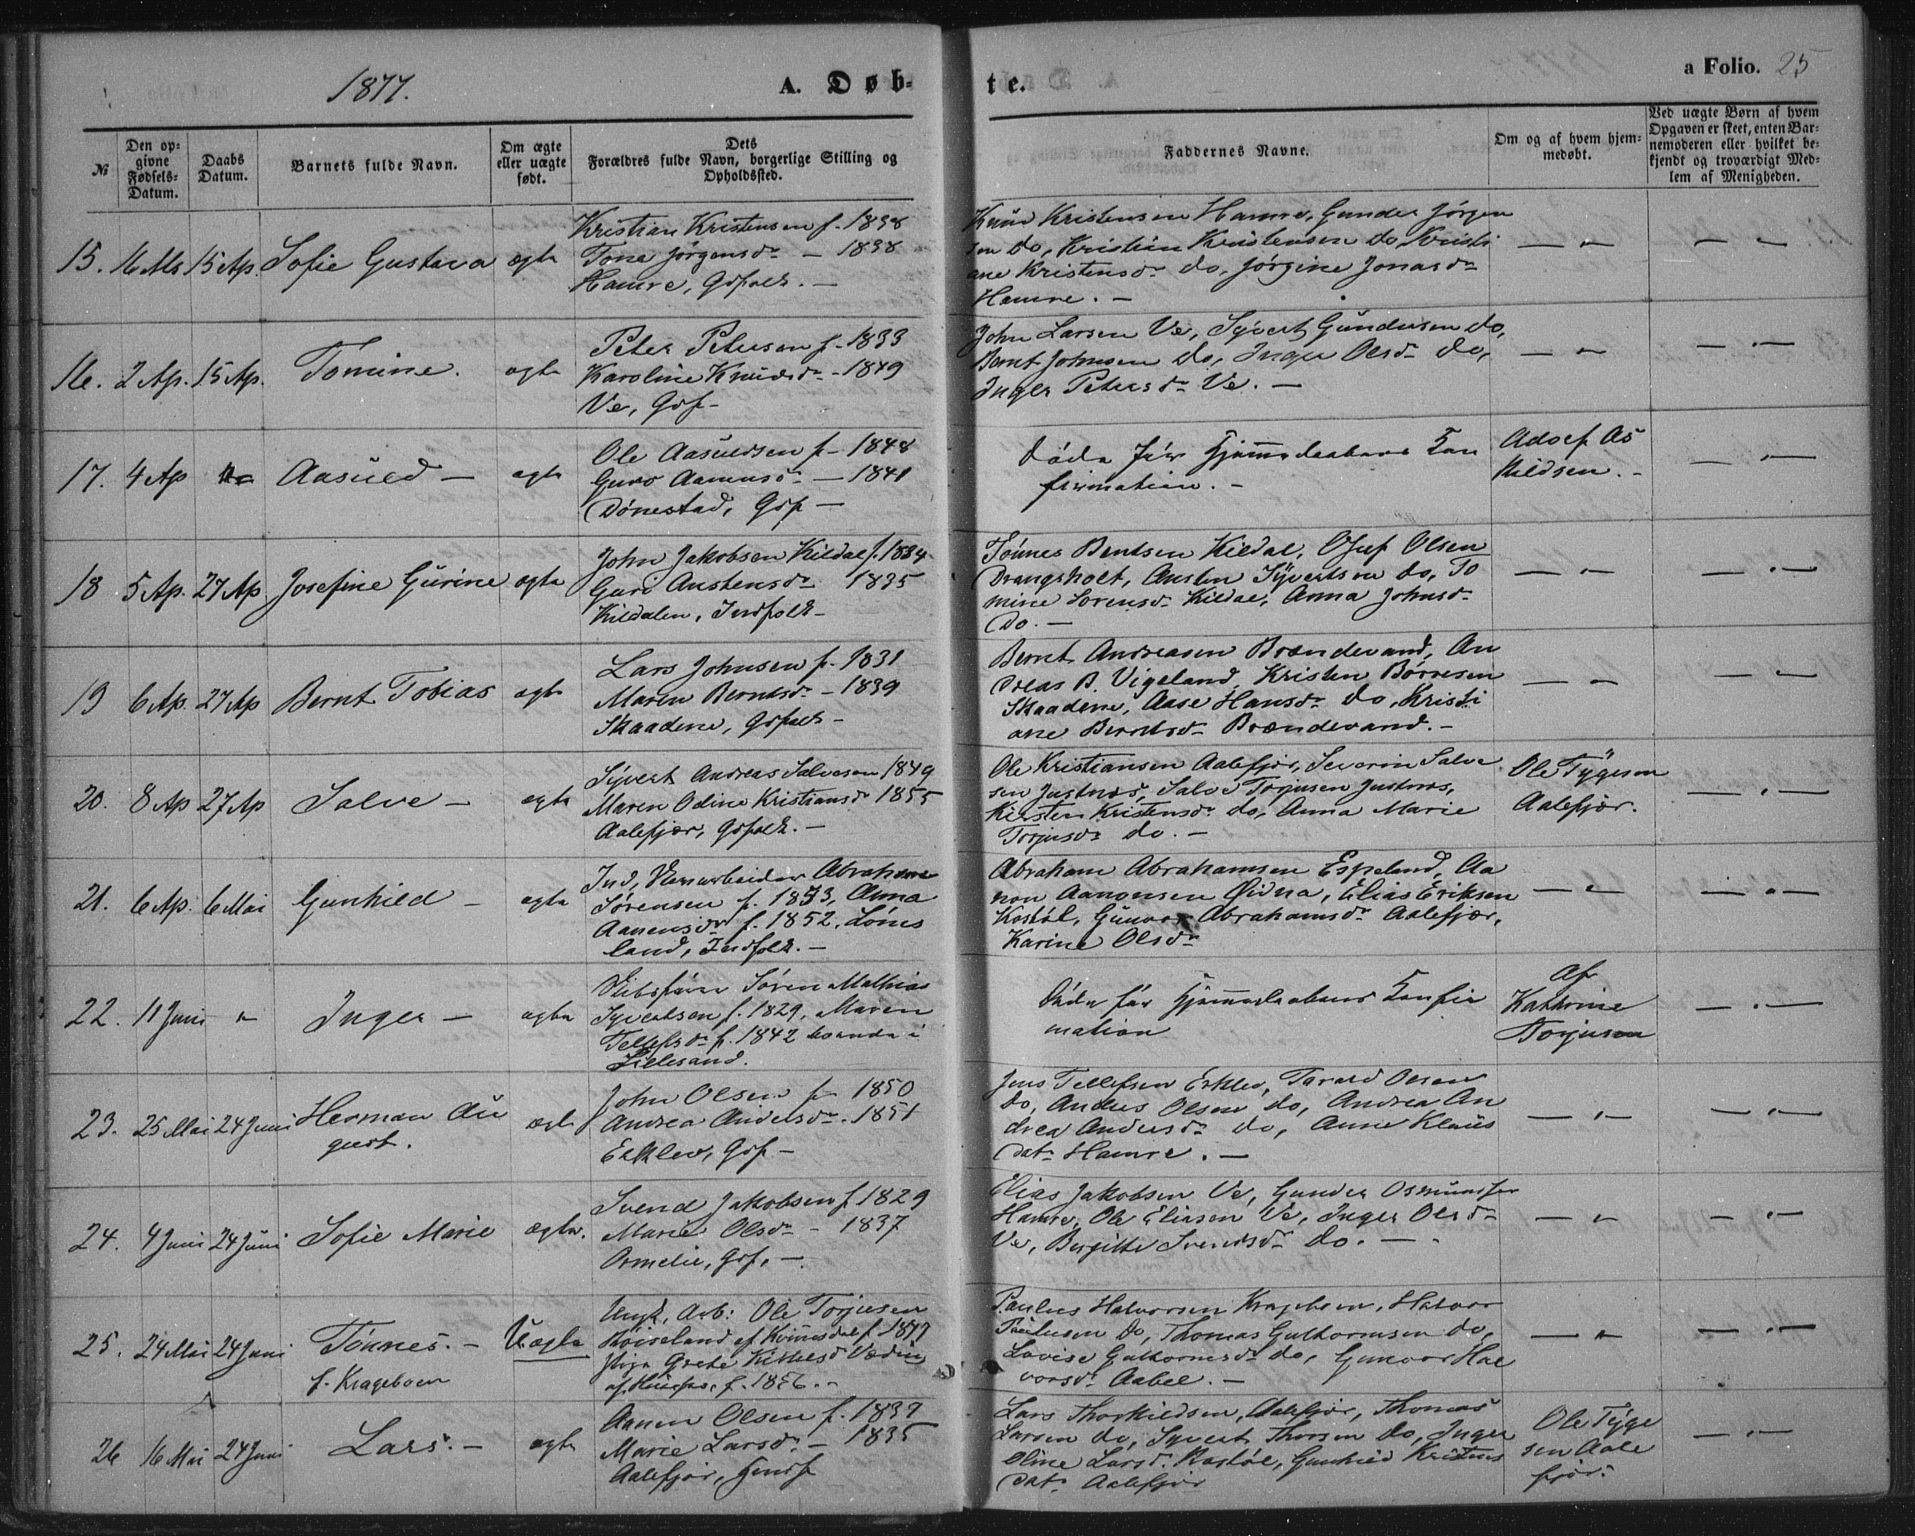 1877.
A. Døb-
te.
a Folio. 25
№
Den op-
givne
Fødsels-
Datum.
Daabs
Datum.
Barnets fulde Navn.
Om ægte
eller uægte
født.
Dets
Forældres fulde Navn, borgerlige Stilling og
Opholdssted.
Faddernes Navne.
Om og af hvem hjem-
medøbt.
Ved uægte Børn af hvem
Opgaven er skeet, enten Bar-
nemoderen eller hvilket be-
kjendt og troværdigt Med-
lem af Menigheden.
15. 16 Ms 15 Ap Sofie Gustava ægte
Kristian Kristensen f. 1838
Tone Jørgensdr — 1838
Hamre, Gdfolk. —
Knud Kristensen Hamre, Gunder Jørgen
sen do, Kristian Kristensen do, Kristi
ane Kristensdr do, Jørgine Jonasdr
Hamre. —
— " —
— " —
16. 2 Ap. 15 Ap. Tomine. ægte
Peter Petersen f. 1833
Karoline Knudsdr — 1849
Ve, Gdf —
John Larsen Ve, Syvert Gundersen do,
Bernt Johnsen do, Inger Olsdr do,
Inger Petersdr Ve. —
— " —
— " —
17. 4 Ap Aasuld — ægte
Ole Aasuldsen f — 1848
Guro Aanensdr — 1841
Dønestad, Gdf —
Døde før Hjemmedaabens Kon
firmation. —
Adolf As
kildsen. —
— " —
18 5 Ap. 27 Ap Josefine Gurine ægte
John Jakobsen Kildal f. 1834
Guro Austensdr 1835
Kildalen, Indfolk —
Tønnes Bentsen Kildal, Oluf Olsen
Drangsholt, Austen Syvertsen do, To
mine Sørensdr Kildal, Anna Johnsdr
do. —
— " —
— " —
19 6 Ap. 27 Ap Bernt Tobias ægte
Lars Johnsen f. 1831
Maren Berntsdr — 1839
Skaadene, Gdfolk —
Bernt Andreasen Brændevand, An
dreas B. Vigeland, Kristen Børresen
Skaadene, Aase Hansdr do, Kristi
ane Berntsdr Brændevand. —
— " —
— " —
20. 8 Ap 27 Ap Salve — ægte
Syvert Andreas Salvesen 1849
Maren Odine Kristiansdr 1855
Aalefjær, Gdfolk. —
Ole Kristiansen Aalefjær, Severin Salve
sen Justnæs, Salve Torjusen Justnæs,
Kirsten Kristensdr do, Anna Marie
Torjusdr do. —
Ole Tygesen
Aalefjær.
— " —
21. 6 Ap. 6 Mai Gunhild — ægte
Ind, Veiarbeider Abraham
Sørensen f. 1853, Anna
Aanensdr f. 1852, Lønes
land, Indfolk. —
Abraham Abrahamsen Espeland, Aa
non Aanonsen Øidna, Elias Eriksen
Kostøl, Gunvor Abrahamsdr Aalefjær,
Karine Olsdr
— " —
— " —
22. 11 Juni " Inger — ægte
Skibsfører Søren Mathias
Syvertsen f. 1829, Maren
Tellefsdr f. 1842 boende i
Lillesand.
Døde før Hjemmedaabens Konfir
mation
Af
Kathrine
Torjusen
— " —
23. 25 Mai 24 Juni Herman Au ægte
gust.
John Olsen f — 1850
Andrea Andersdr . 1851
Erklev, Gdf —
Jens Tellefsen Erklev, Tarald Olsen
do, Anders Olsen do, Andrea An
drea Andersdr do, Anne Klaus
datr Hamre. —
— " —
— " —
24. 4 Juni 24 Juni Sofie Marie ægte.
Svend Jakobsen f 1829
Marie Olsdr — 1837
Ormelie, Gdf. —
Elias Jakobsen Ve, Gunder Osmundsen
Hamre, Ole Eliasen Ve, Inger Olsdr
Ve, Birgitte Svendsdr do. —
— " —
— " —
25. 24 Mai 24 Juni Tønnes. — Uægte
f. Krageboen
Ungk. Arb. Ole Torjusen
Røiseland af Kvinesdal f 1847
Pige Grete Kittelsd
f. 1856. —
Paulus Halvorsen Krageboen, Halvor
Paulusen do, Thomas Guthormsen do,
Lovise Guthormsdr do, Gunvor Hal
vorsdr Aabel. —
— " —
— " —
26 16 Mai 24 Juni Lars. — ægte
Aanen Olsen f. 1837
Marie Larsdr — 1835
Aalefjær, Gmdf
Lars Thorkildsen, Aalefjær, Thomas
Larsen do, Syvert Thorsen do, Inger
Oline Larsdr Kostøl, Gunhild Kristens
datr Aalefjær
Ole Tyge
sen Aale
fjær.
— " —